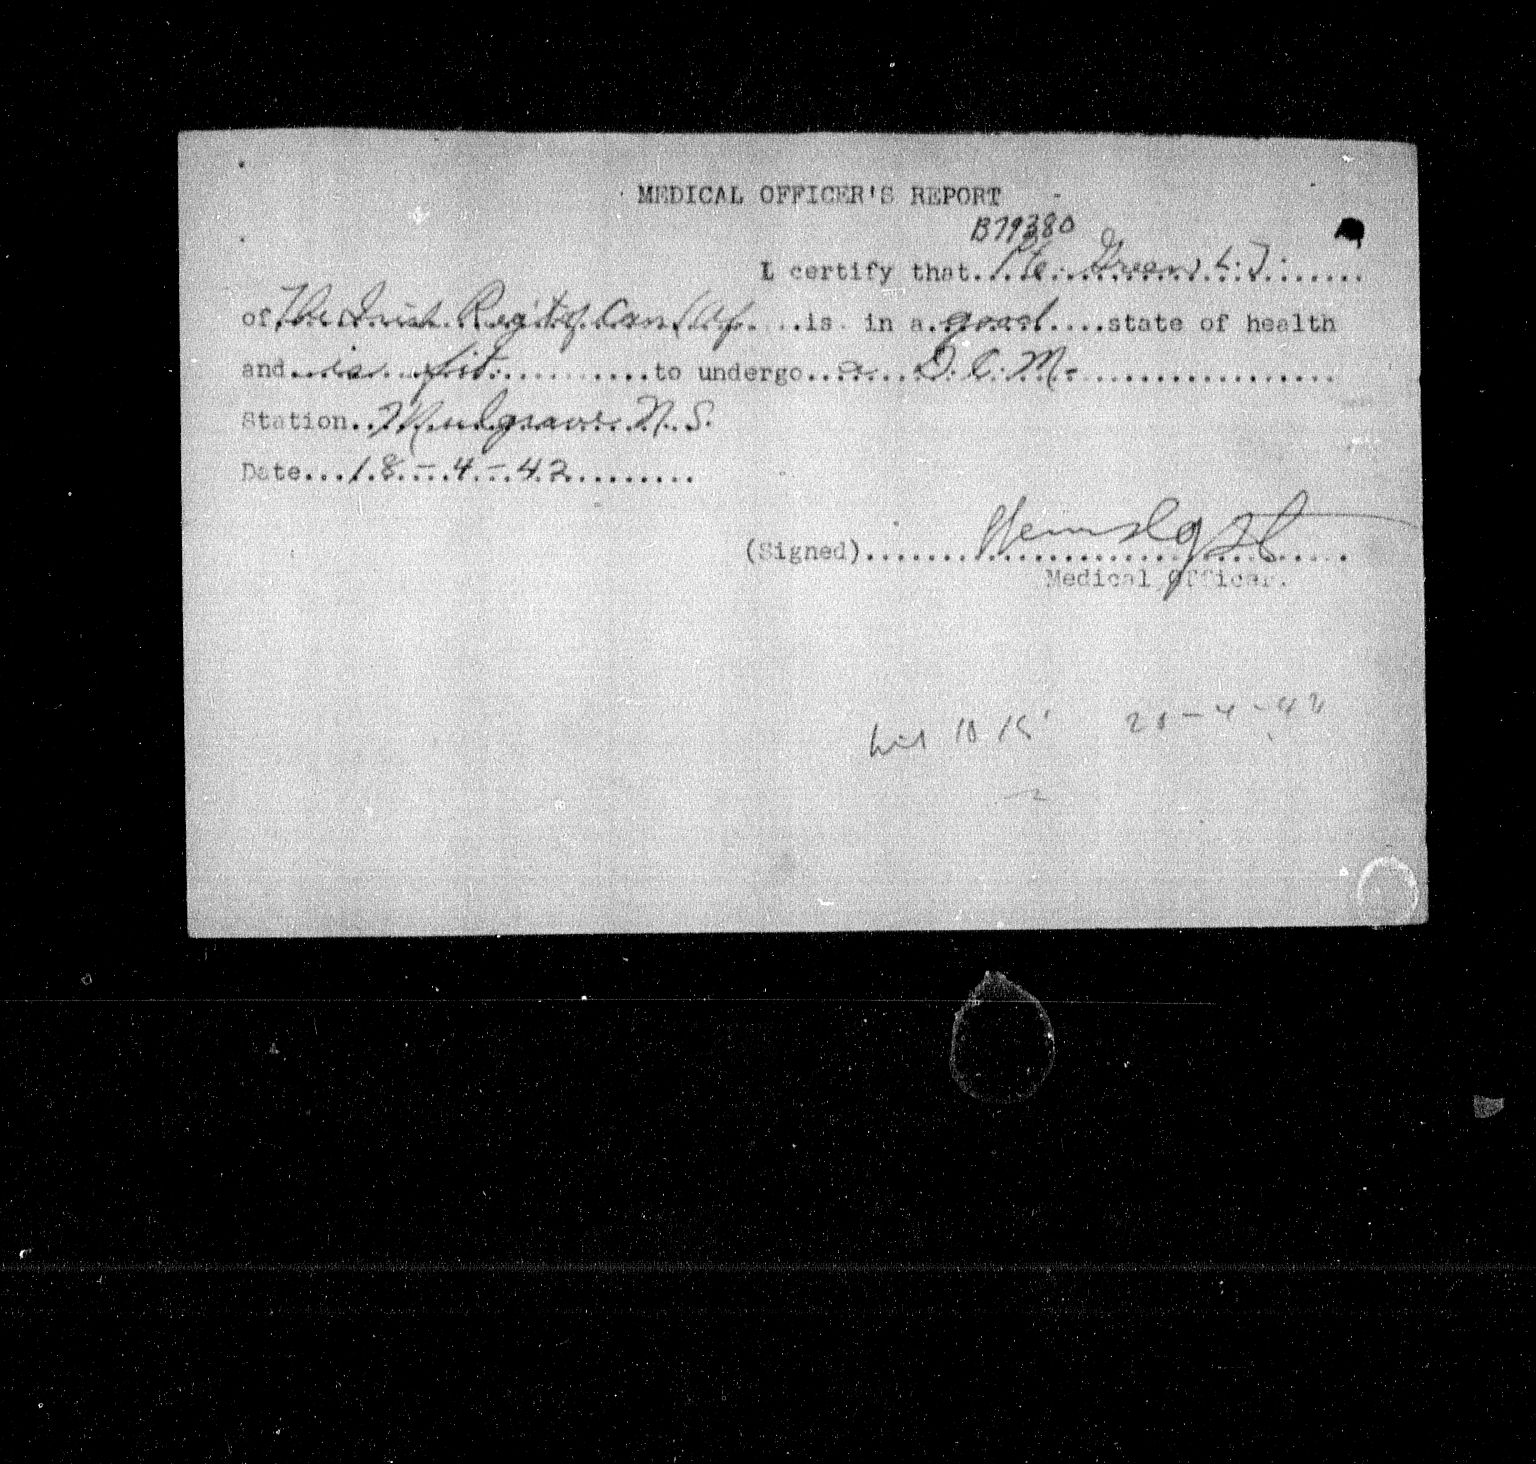 MEDICAL OFFICER'S REPORT
B79380
I certify that Pte. Green L.J.
of The Irish Reg't of Can (Af is in a good state of health
and is fit to undergo a D.C.M.
Station Mulgrave N.S.
Date 18-4-42
(Signed)
Medical Officer.
10 15' 20-4-42